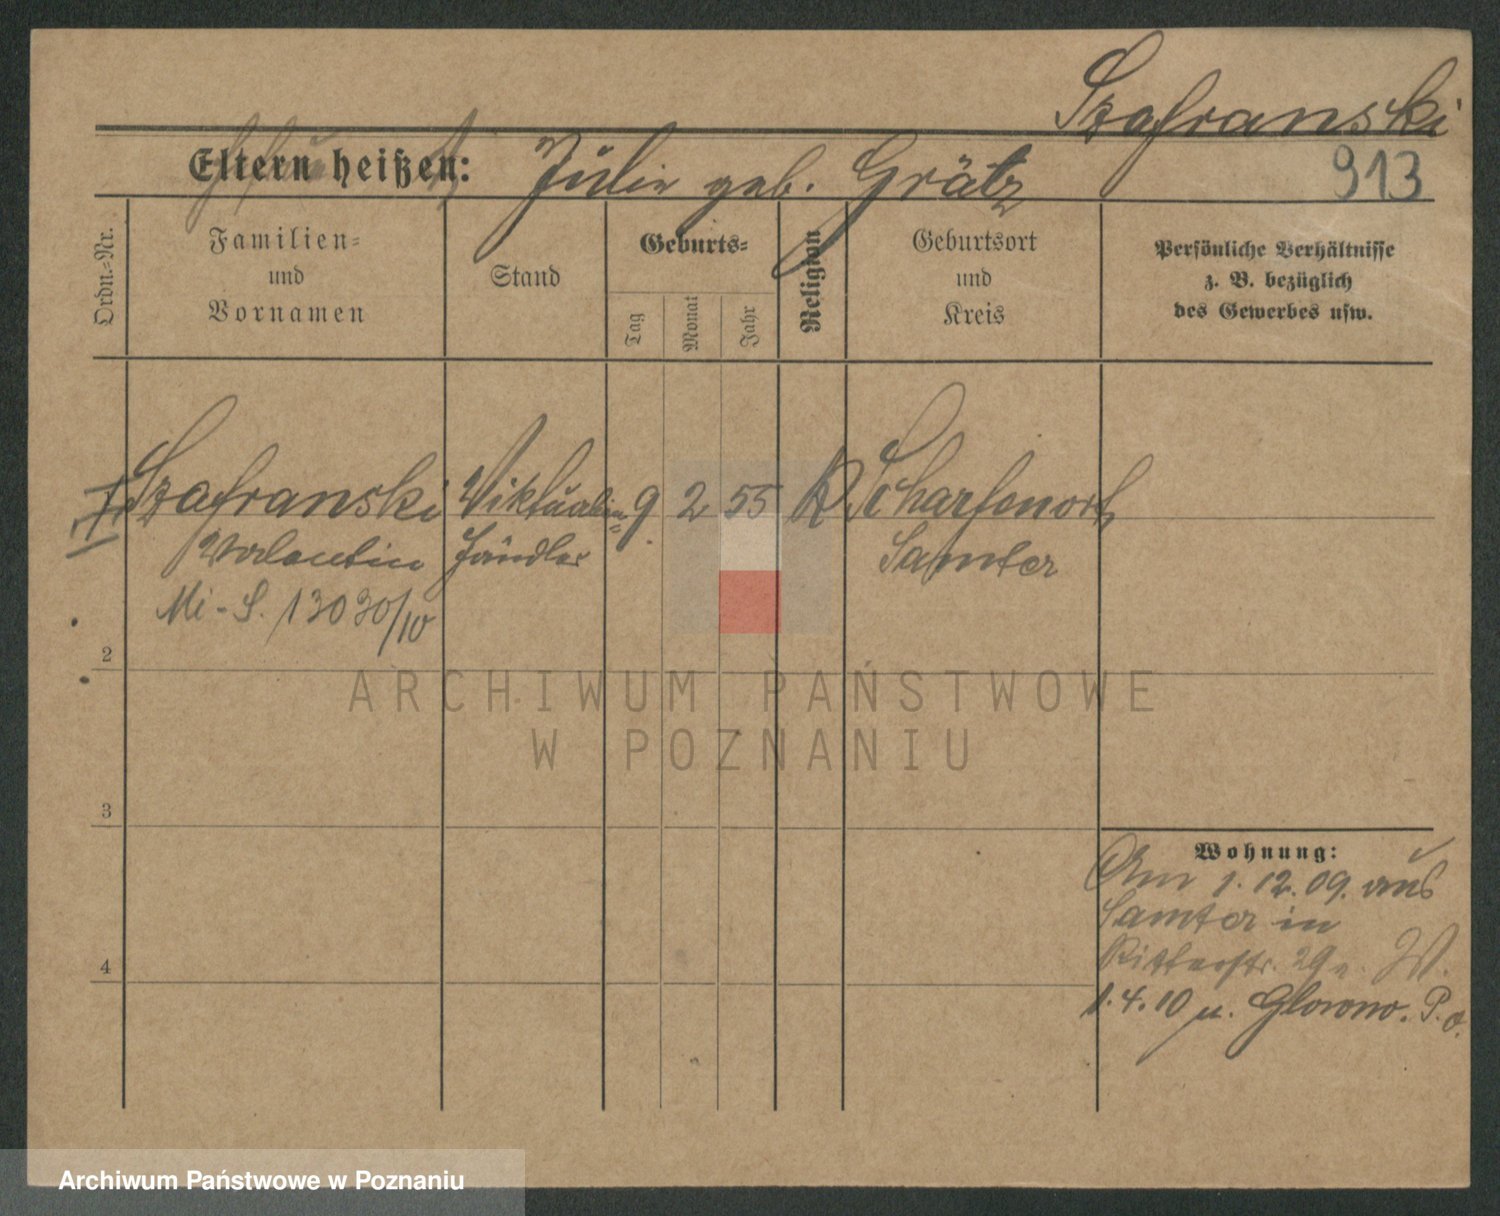 Szafranski
913
Eltern heißen: Julie geb. Grätz
Ordn.=Nr.
Familien=
und
Vornamen
Stand
Geburts=
Tag
Monat
Jahr
Religion
Geburtsort
und
Kreis
Persönliche Verhältnisse
z. B. bezüglich
des Gewerbes usw.
Szafranski Viktualien= 9 2 55 K. Scharfenort
Valentin händler Samter
Mi-S. 13030/10
2
3
4
Wohnung:
Am 1.12.09. aus
Samter in
Ritterstr. 29
1.4.10 n. Glowno. P.o.
ARCHIWUM PAŃSTWOWE
W POZNANIU
Archiwum Państwowe w Poznaniu